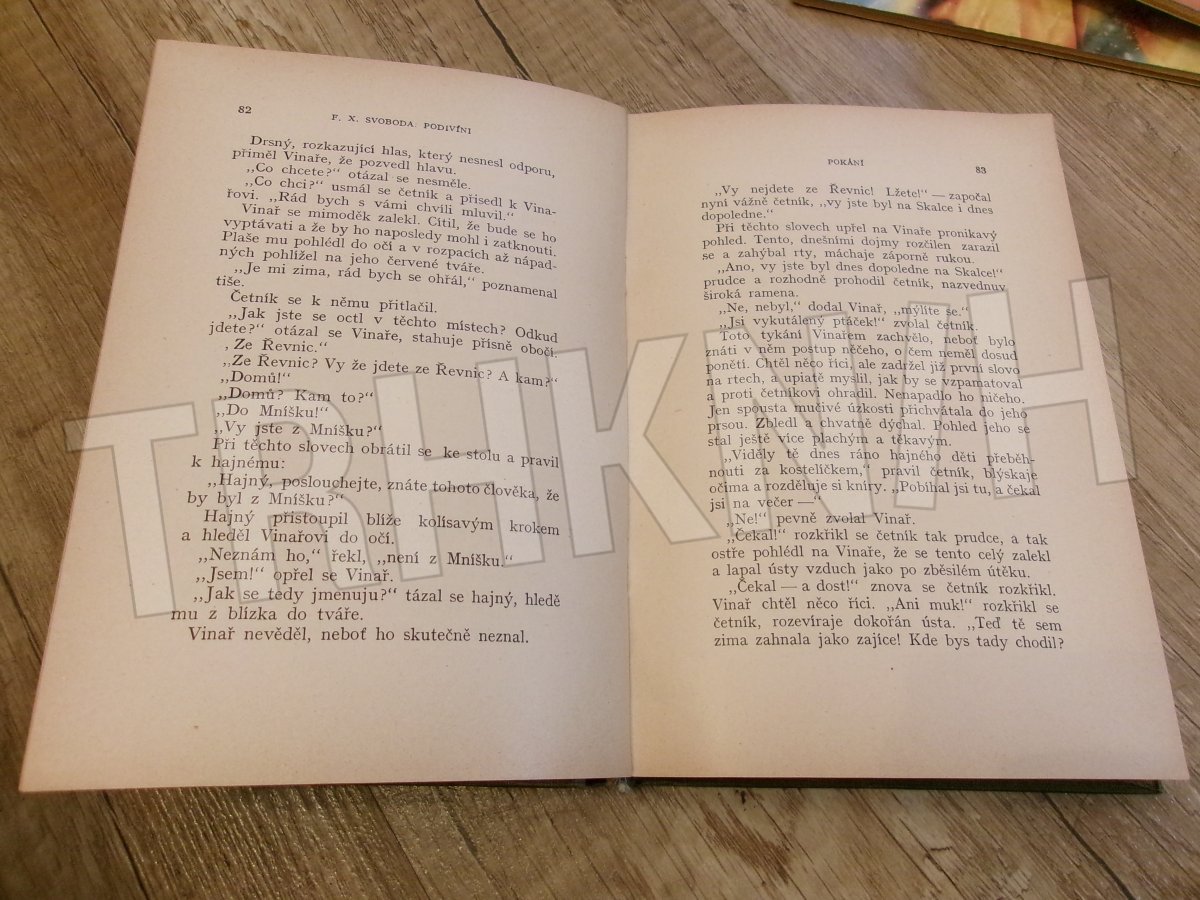 82
F. X. SVOBODA: PODIVÍNI
Drsný, rozkazující hlas, který nesnesl odporu,
přiměl Vinaře, že pozvedl hlavu.
„Co chcete?“ otázal se nesměle.
„Co chci?“ usmál se četník a přisedl k Vina-
řovi. „Rád bych s vámi chvíli mluvil.“
Vinař se mimoděk zalekl. Cítil, že bude se ho
vyptávati a že by ho naposledy mohl i zatknouti.
Plaše mu pohlédl do očí a v rozpacích až nápad-
ných pohlížel na jeho červené tváře.
„Je mi zima, rád bych se ohřál,“ poznamenal
tiše.
Četník se k němu přitlačil.
„Jak jste se octl v těchto místech? Odkud
jdete?“ otázal se Vinaře, stahuje přísně obočí.
‚Ze Řevnic.“
„Ze Řevnic? Vy že jdete ze Řevnic? A kam?“
„Domů!“
„Domů? Kam to?“
„Do Mníšku!“
„Vy jste z Mníšku?“
Při těchto slovech obrátil se ke stolu a pravil
k hajnému:
„Hajný, poslouchejte, znáte tohoto člověka, že
by byl z Mníšku?“
Hajný přistoupil blíže kolísavým krokem
a hleděl Vinařovi do očí.
„Neznám ho,“ řekl, „není z Mníšku.“
„Jsem!“ opřel se Vinař.
„Jak se tedy jmenuju?“ tázal se hajný, hledě
mu z blízka do tváře.
Vinař nevěděl, neboť ho skutečně neznal.
POKÁNÍ
83
„Vy nejdete ze Řevnic! Lžete!“ — započal
nyní vážně četník, „vy jste byl na Skalce i dnes
dopoledne.“
Při těchto slovech upřel na Vinaře pronikavý
pohled. Tento, dnešními dojmy rozčilen zarazil
se a zahýbal rty, máchaje záporně rukou.
„Ano, vy jste byl dnes dopoledne na Skalce!“
prudce a rozhodně prohodil četník, nazvednuv
široká ramena.
„Ne, nebyl,“ dodal Vinař, „mýlíte se.“
„Jsi vykutálený ptáček!“ zvolal četník.
Toto tykání Vinařem zachvělo, neboť bylo
znáti v něm postup něčeho, o čem neměl dosud
ponětí. Chtěl něco říci, ale zadržel již první slovo
na rtech, a upiatě myslil, jak by se vzpamatoval
a proti četníkovi ohradil. Nenapadlo ho ničeho.
Jen spousta mučivé úzkosti přichvátala do jeho
prsou. Zbledl a chvatně dýchal. Pohled jeho se
stal ještě více plachým a těkavým.
„Viděly tě dnes ráno hajného děti přeběh-
nouti za kostelíčkem,“ pravil četník, blýskaje
očima a rozděluje si kníry. „Pobíhal jsi tu, a čekal
jsi na večer —“
„Ne!“ pevně zvolal Vinař.
„Čekal!“ rozkřikl se četník tak prudce, a tak
ostře pohlédl na Vinaře, že se tento celý zalekl
a lapal ústy vzduch jako po zběsilém útěku.
„Čekal — a dost!“ znova se četník rozkřikl.
Vinař chtěl něco říci. „Ani muk!“ rozkřikl se
četník, rozevíraje dokořán ústa. „Teď tě sem
zima zahnala jako zajíce! Kde bys tady chodil?
TRHKNIH